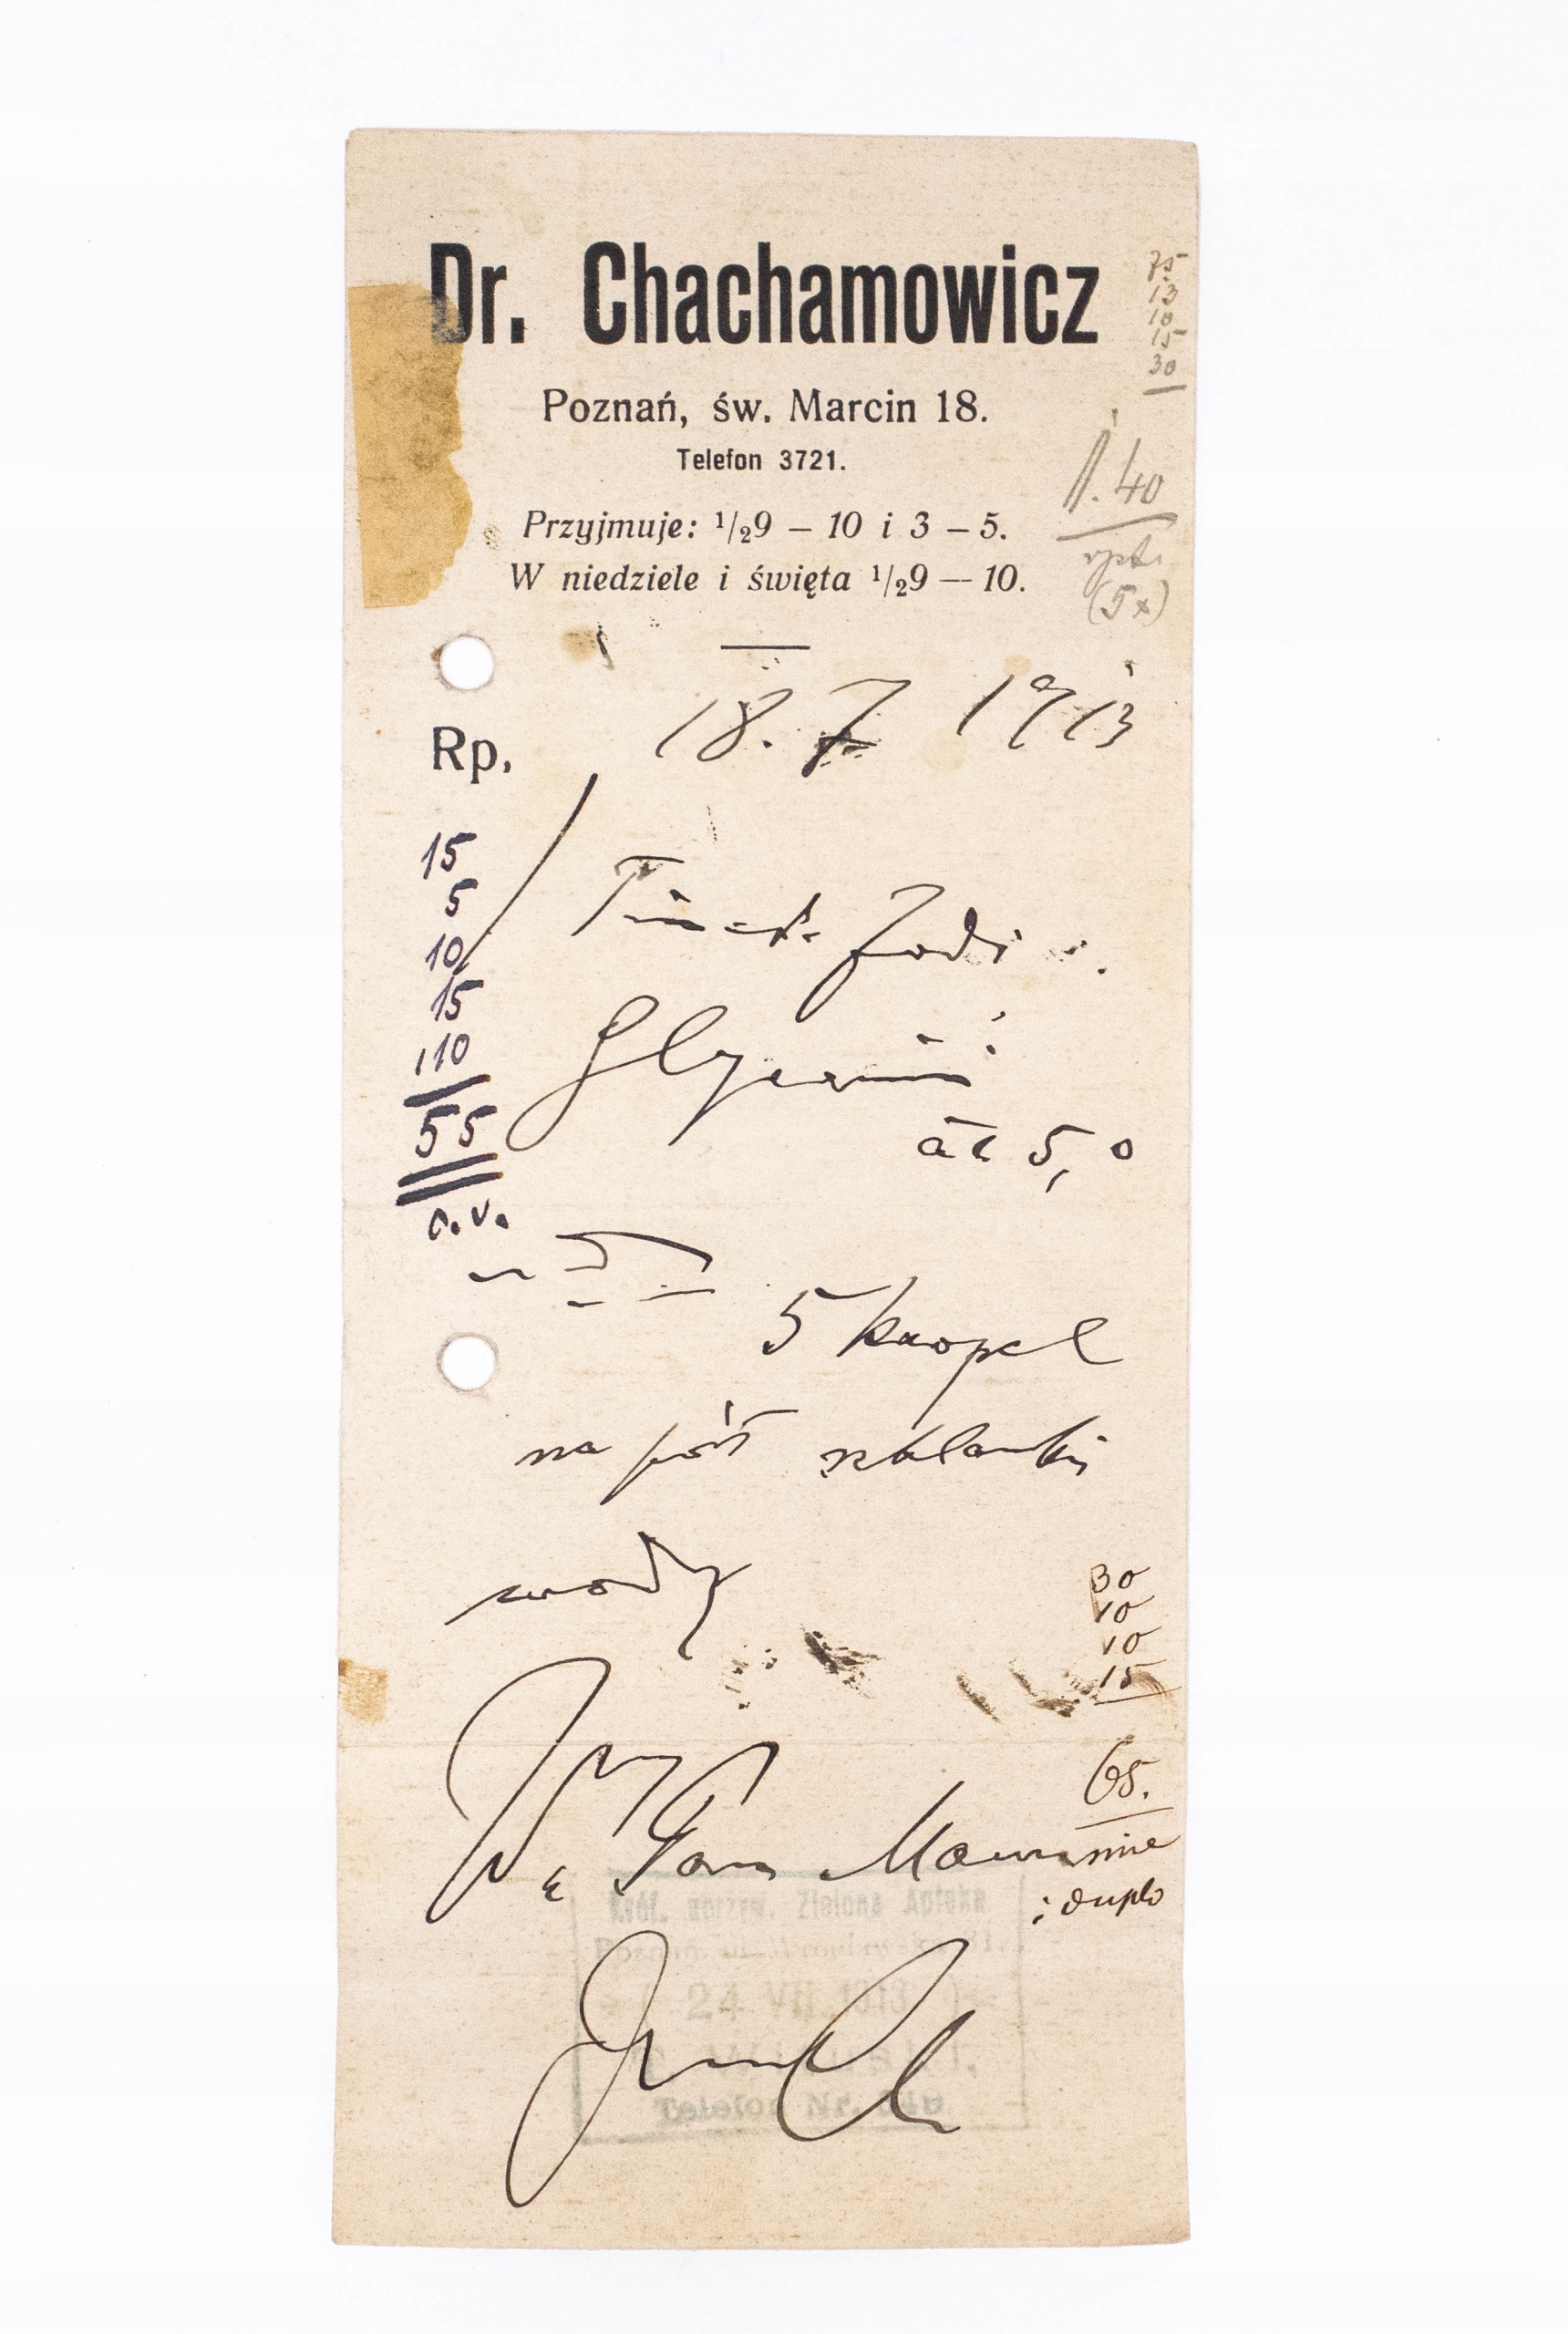 Dr. Chachamowicz
Poznań, św. Marcin 18.
Telefon 3721.
Przyjmuje: ½9 – 10 i 3 – 5.
W niedziele i święta ½9 — 10.
75
13
10
15
30
1.40
(5x)
18. 7 1913
Rp.
15
5
10
15
10
55
Tinct. Jodi
Glycerini
āā 5,0
5 kropel
na pół szklanki
wody
30
10
10
15
65.
duplo
Król. uprzyw. Zielona Apteka
24 VII 1913
Telefon Nr.